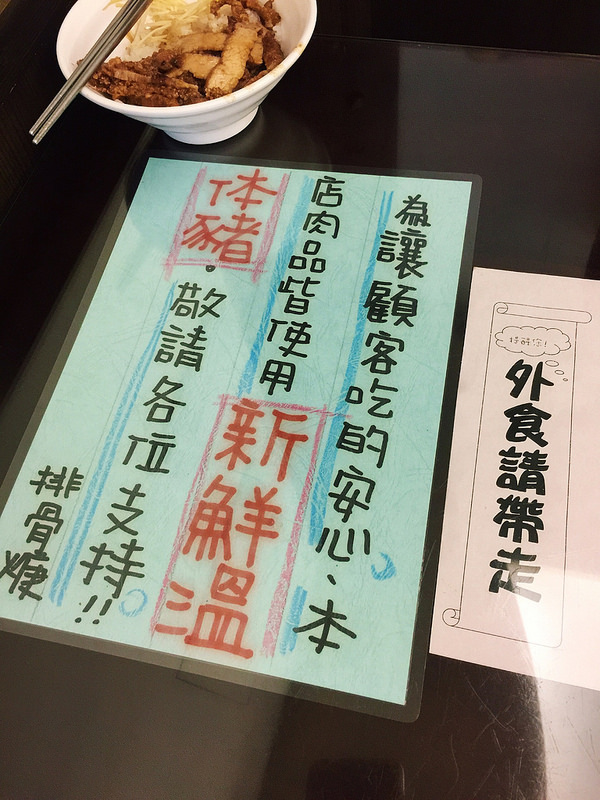 為讓顧客吃的安心、本
店肉品皆使用新鮮溫
体豬。敬請各位支持!!
排骨焿
提醒您!
外食請帶走